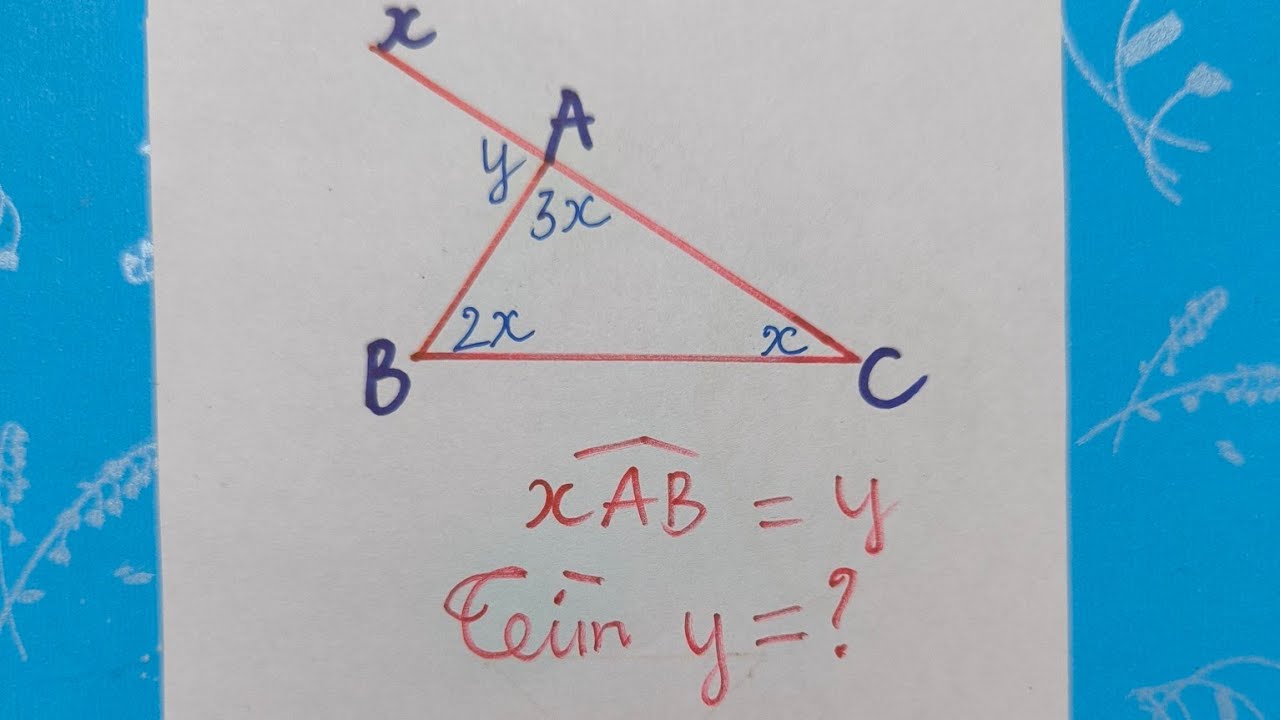 x
A
y
3x
2x
x
B
C
xAB = y
Tìm y = ?